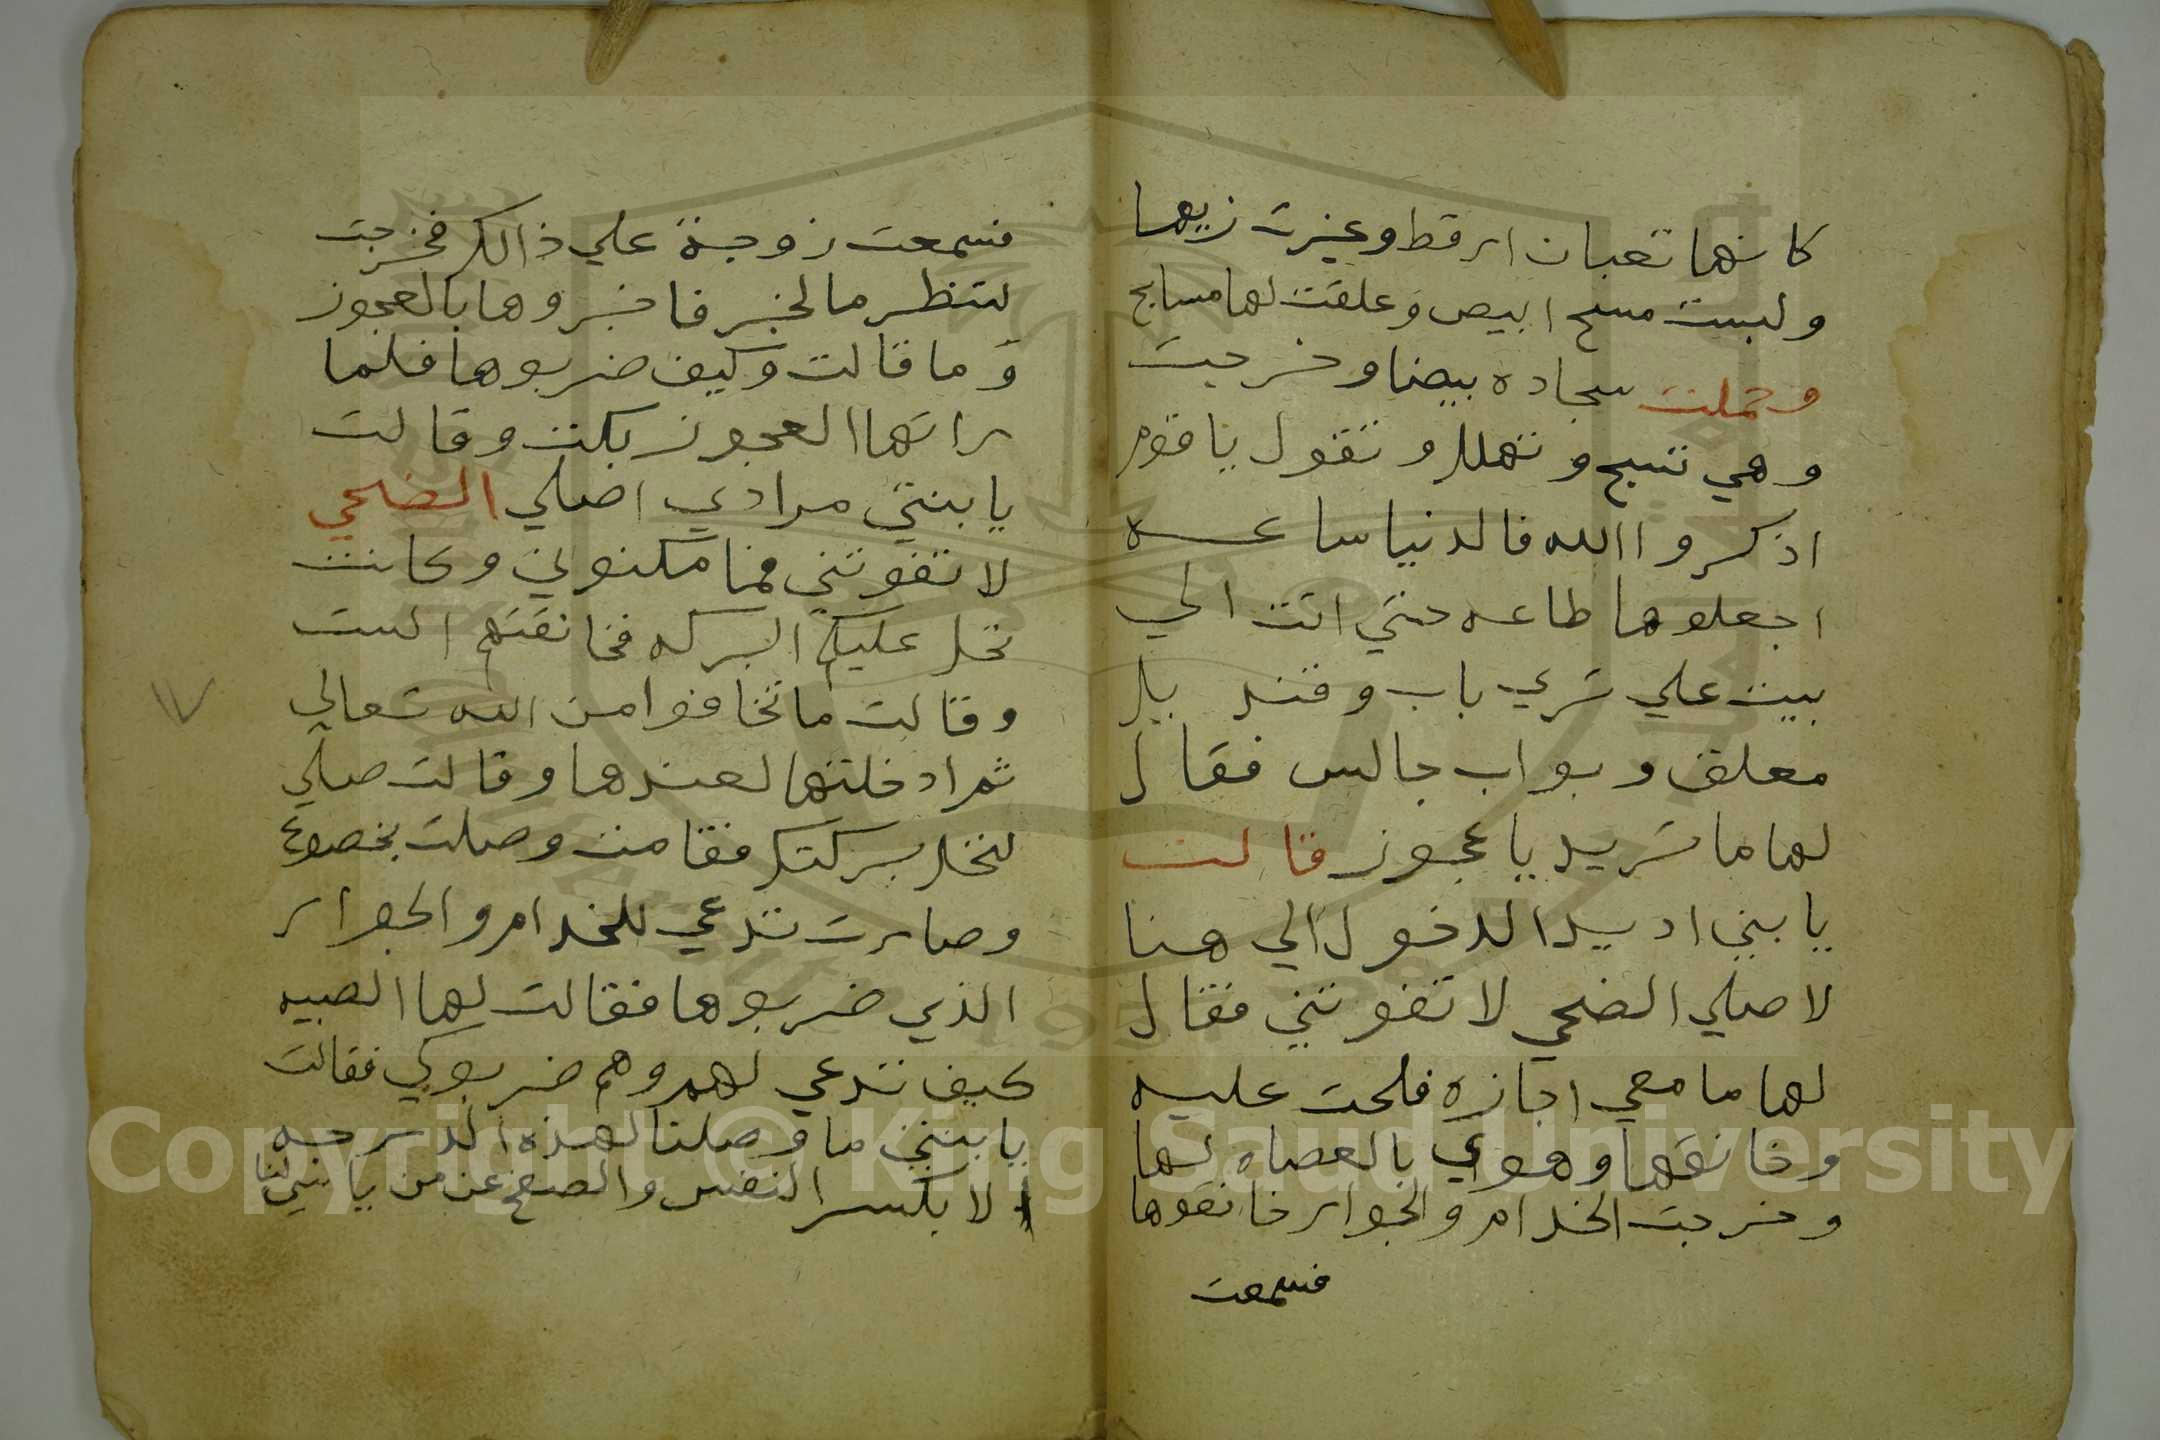 كانها تعبان ارقط وغيرت زيها
ولبست مسح ابيض وعلقت لها مسابح
وحملت سجاده بيضا وخرجت
وهي تسبح وتهلل وتقول يا قوم
اذكروا الله فالدنيا ساعه
اجعلوها طاعه حتي اتت الي
بيت علي تري باب وقنديل
معلق وبواب جالس فقال
لها ما تريد يا عجوز قالت
يا بني اريد الدخول الي هنا
لاصلي الضحي لا تفوتني فقال
لها ما معي اجازه فلحت عليه
وخانقها وهوي بالعصاه لها
وخرجت الخدام والجوار خانقوها
فسمعت
فسمعت زوجة علي ذالك فخرجت
لتنظر مالخبر فاخبروها بالعجوز
وما قالت وكيف ضربوها فلما
راتها العجوز بكت وقالت
يا بنتي مرادي اصلي الضحي
لا تفوتني فما مكنوني وكانت
تحل عليكم البركه فخانقتهم الست
وقالت ما تخافوا من الله تعالي
ثم ادخلتها لعندها وقالت صلي
لتحل بركتك فقامت وصلت بخضوع
وصارت تدعي للخدام والجوار
الذي ضربوها فقالت لها الصبيه
كيف تدعي لهم وهم ضربوكي فقالت
يا بنتي ما وصلنا لهذه الدرجه
الا بكسر النفس والصفح عن من يا بنتي لنا
١٧
Copyright © King Saud University